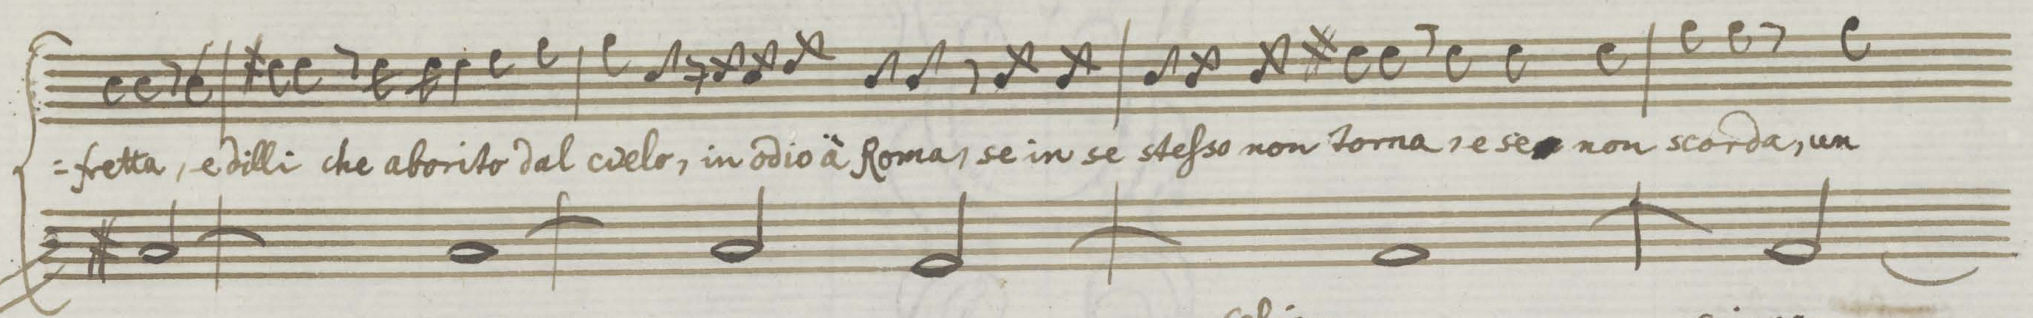 =fretta, e dilli che aborito dal cielo, in odio à Roma, se in se stesso non torna, e se non scorda, un